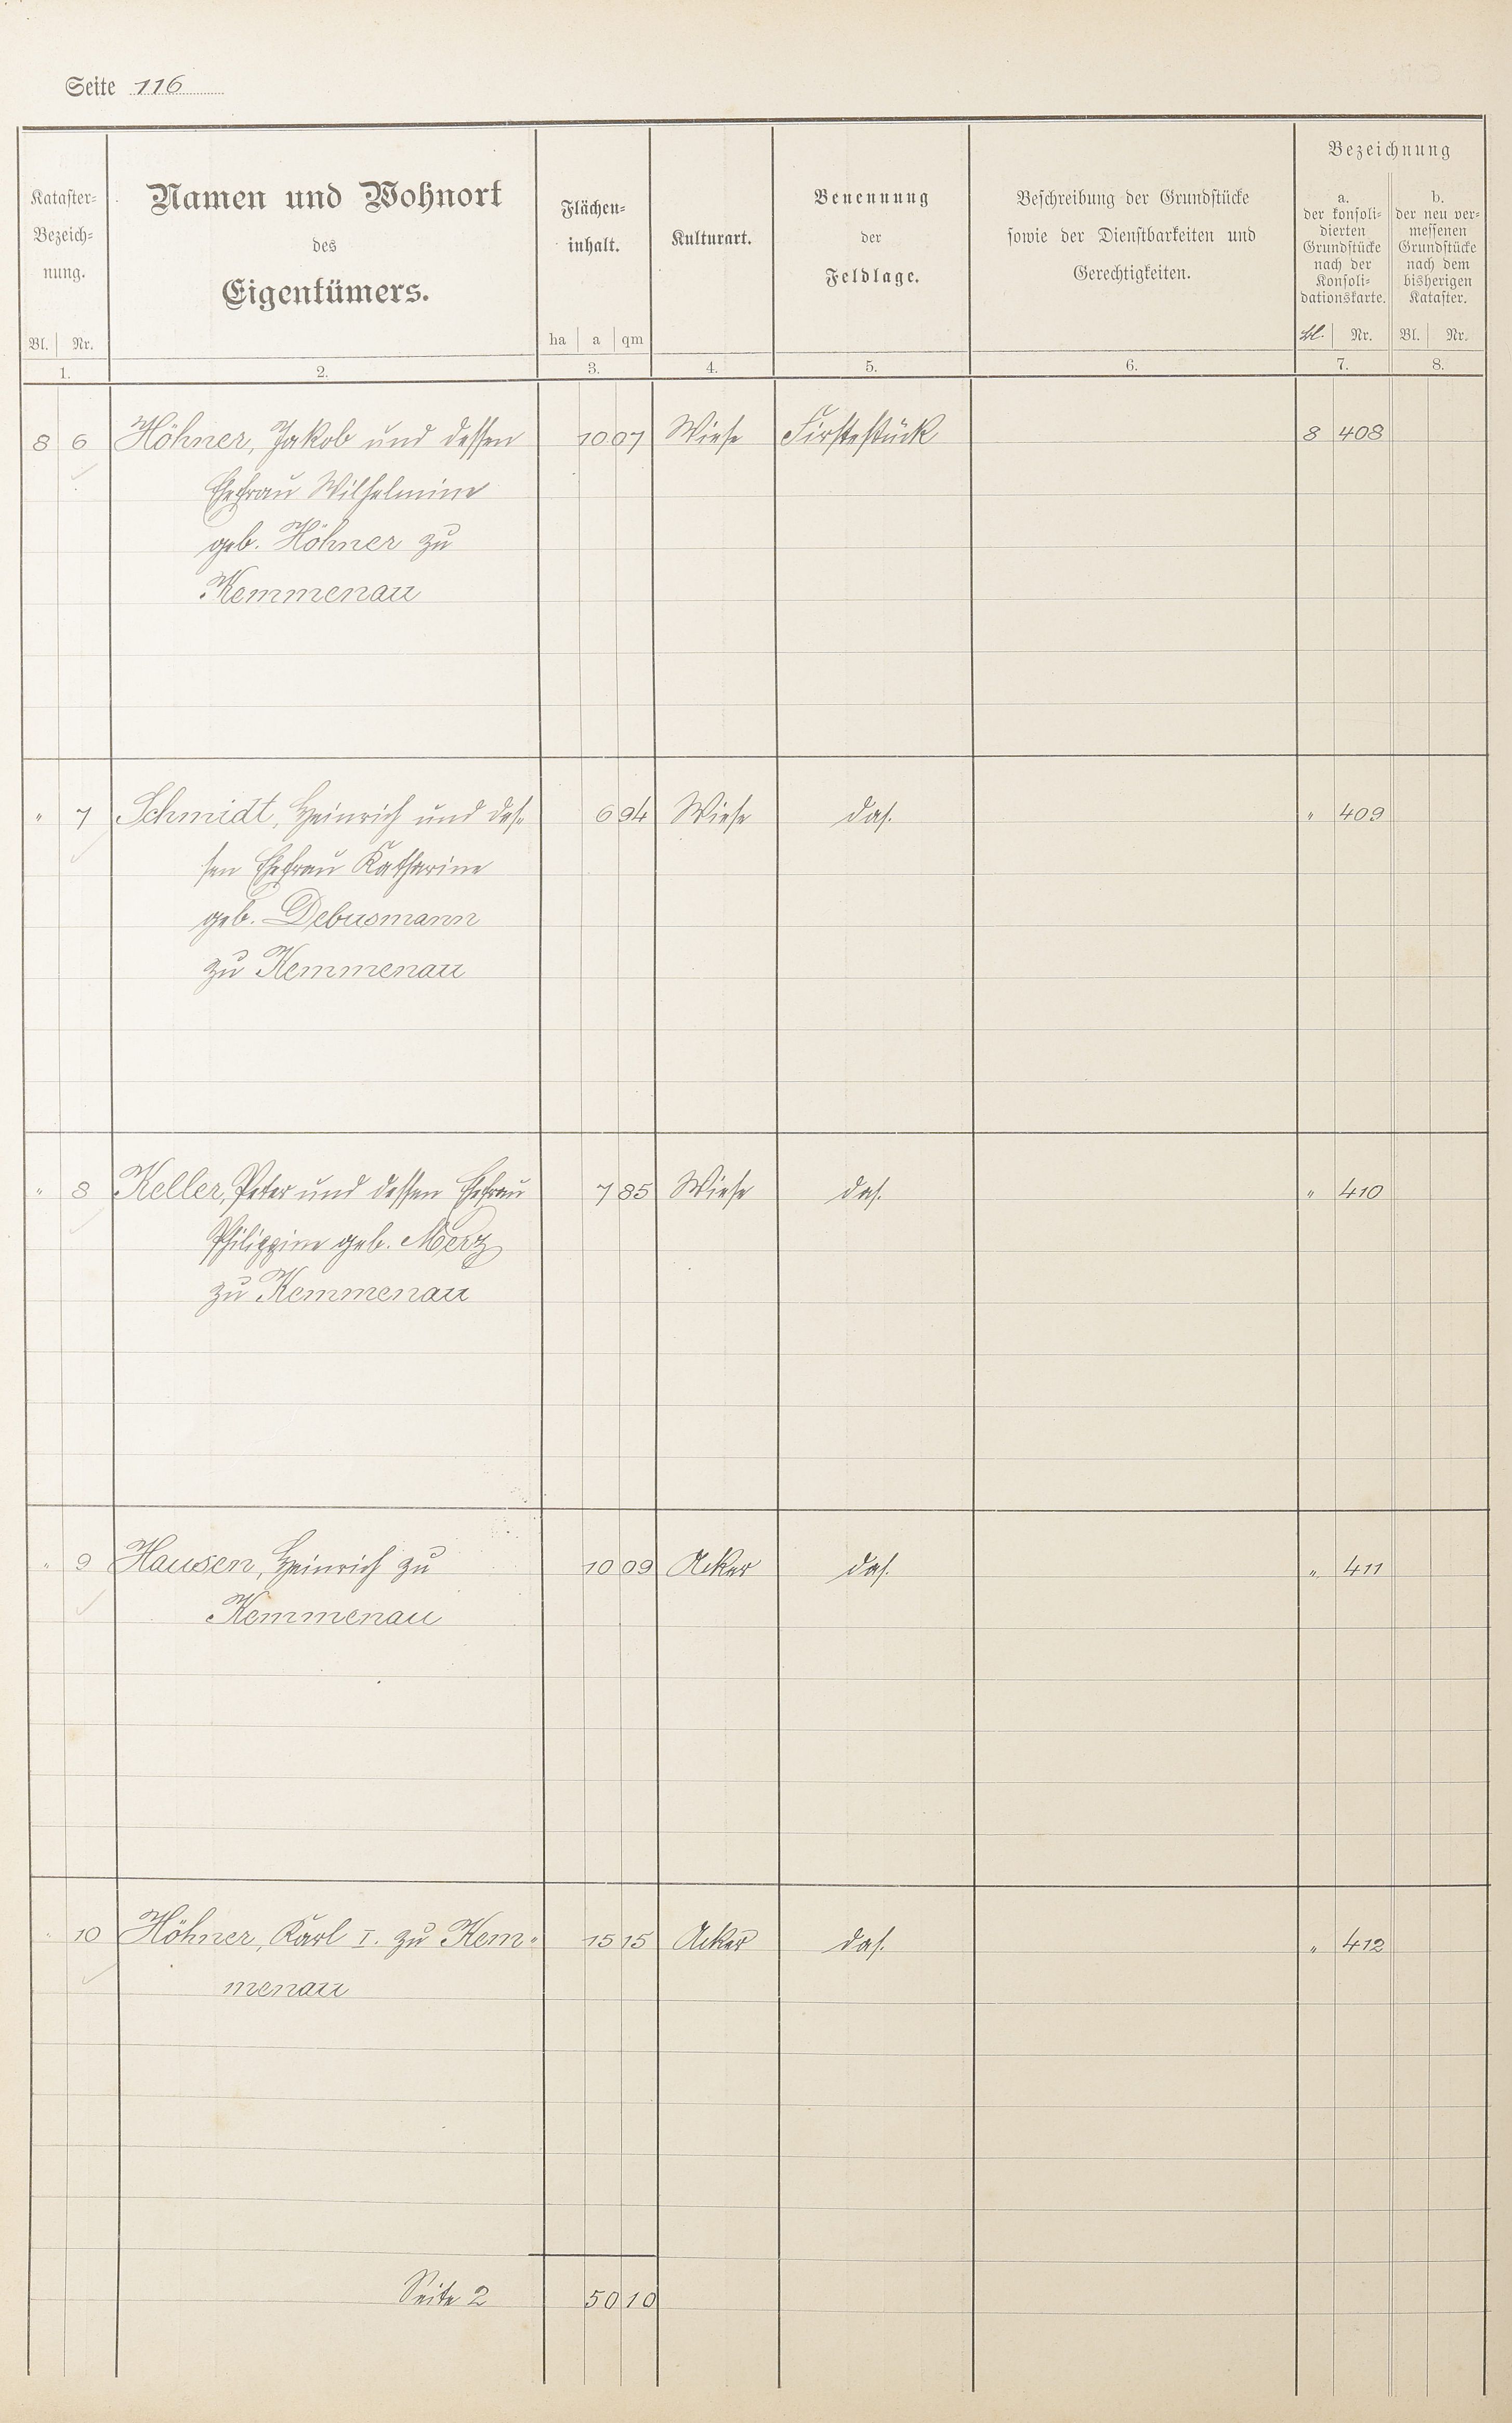 Seite 116
Kataster-
Bezeich-
nung.
Bl. Nr.
1.
Namen und Wohnort
des
Eigentümers.
2.
Flächen-
inhalt.
ha a qm
3.
Kulturart.
4.
Benennung
der
Feldlage.
5.
Beschreibung der Grundstücke
sowie der Dienstbarkeiten und
Gerechtigkeiten.
6.
Bezeichnung
a.
der konsoli-
dierten
Grundstücke
nach der
Konsoli-
dationskarte.
Bl. Nr.
7.
b.
der neu ver-
messenen
Grundstücke
nach dem
bisherigen
Kataster.
Bl. Nr.
8.
8 6 Höhner, Jakob und dessen 10 07 Wiese Firstestück 8 408
Ehefrau Wilhelmine
geb. Höhner zu
Kemmenau
" 7 Schmidt, Heinrich und des- 6 94 Wiese das. " 409
sen Ehefrau Katharine
geb. Debusmann
zu Kemmenau
" 8 Keller, Peter und dessen Ehefrau 7 85 Wiese das. " 410
Philippine geb. Merz
zu Kemmenau
" 9 Hausen, Heinrich zu 10 09 Acker das. " 411
Kemmenau
" 10 Höhner, Karl I. zu Kem- 15 15 Acker das. " 412
menau
Seite 2 50 10